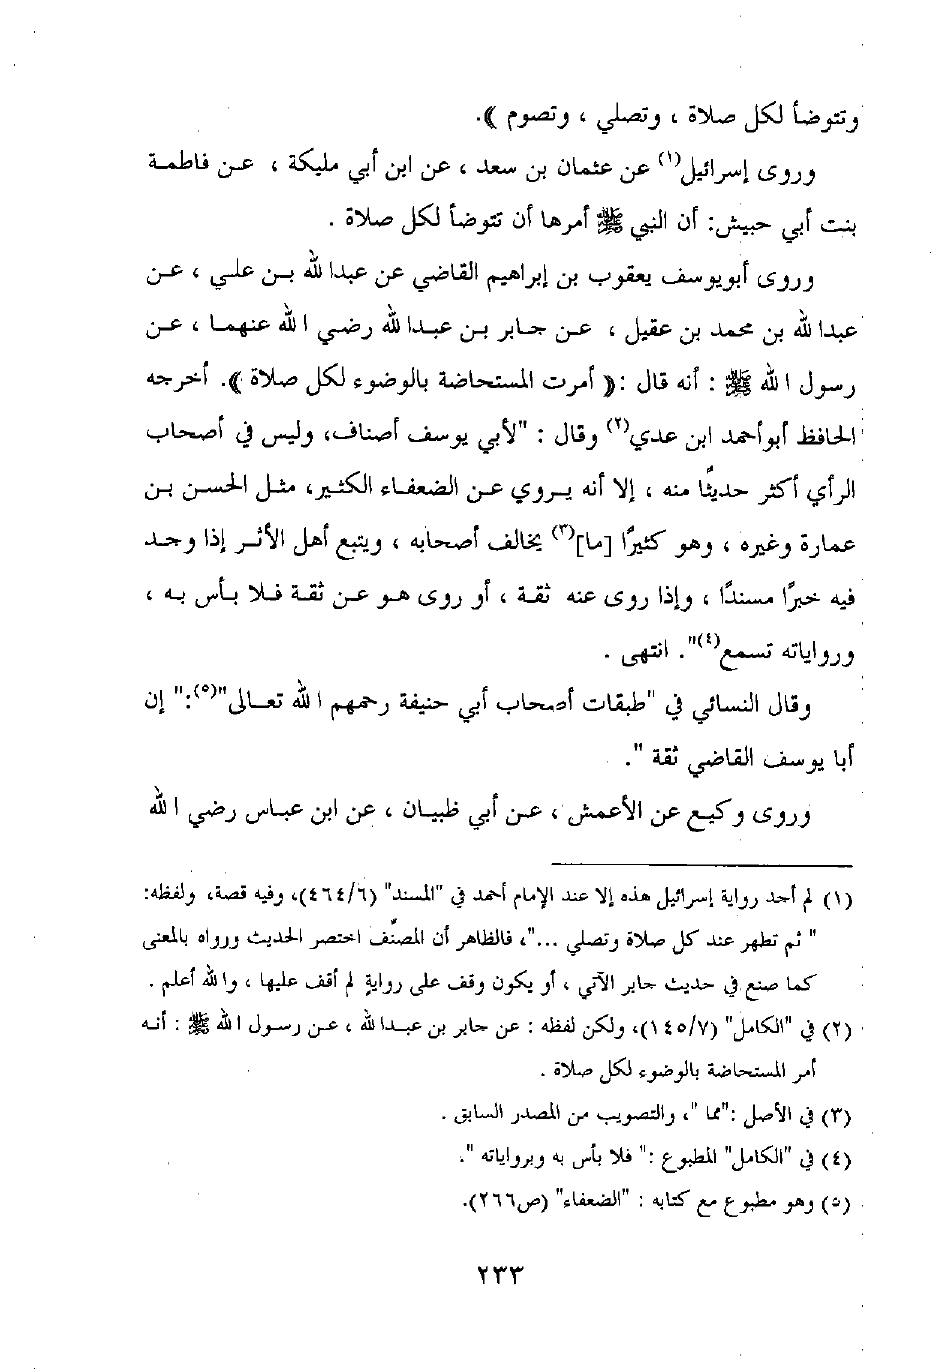 وتتوضأ لكل صلاة ، وتصلي ، وتصوم ﴾.
وروى إسرائيل(١) عن عثمان بن سعد ، عن ابن أبي مليكة ، عن فاطمة
بنت أبي حبيش: أن النبي ﷺ أمرها أن تتوضأ لكل صلاة .
وروى أبويوسف يعقوب بن إبراهيم القاضي عن عبدالله بن علي ، عن
عبدالله بن محمد بن عقيل ، عن جابر بن عبدالله رضي الله عنهما ، عن
رسول الله ﷺ : أنه قال :﴿ أمرت المستحاضة بالوضوء لكل صلاة ﴾. أخرجه
الحافظ أبوأحمد ابن عدي(٢) وقال : "لأبي يوسف أصناف، وليس في أصحاب
الرأي أكثر حديثًا منه ، إلا أنه يروي عن الضعفاء الكثير، مثل الحسن بن
عمارة وغيره ، وهو كثيرًا [ما](٣) يخالف أصحابه ، ويتبع أهل الأثر إذا وجد
فيه خبرًا مسندًا ، وإذا روى عنه ثقة ، أو روى هو عن ثقة فلا بأس به ،
ورواياته تسمع(٤)". انتهى .
وقال النسائي في "طبقات أصحاب أبي حنيفة رحمهم الله تعالى"(٥):" إن
أبا يوسف القاضي ثقة ".
وروى وكيع عن الأعمش ، عن أبي ظبيان ، عن ابن عباس رضي الله
(١) لم أجد رواية إسرائيل هذه إلا عند الإمام أحمد في "المسند" (٤٦٤/٦)، وفيه قصة، ولفظه:
" ثم تطهر عند كل صلاة وتصلي ..."، فالظاهر أن المصنِّف اختصر الحديث ورواه بالمعنى
كما صنع في حديث جابر الآتي ، أو يكون وقف على روايةٍ لم أقف عليها ، والله أعلم .
(٢) في "الكامل" (١٤٥/٧)، ولكن لفظه : عن جابر بن عبدالله ، عن رسول الله ﷺ : أنه
أمر المستحاضة بالوضوء لكل صلاة .
(٣) في الأصل :"مما "، والتصويب من المصدر السابق .
(٤) في "الكامل" المطبوع :" فلا بأس به وبرواياته ".
(٥) وهو مطبوع مع كتابه : "الضعفاء" (ص٢٦٦).
٢٣٣